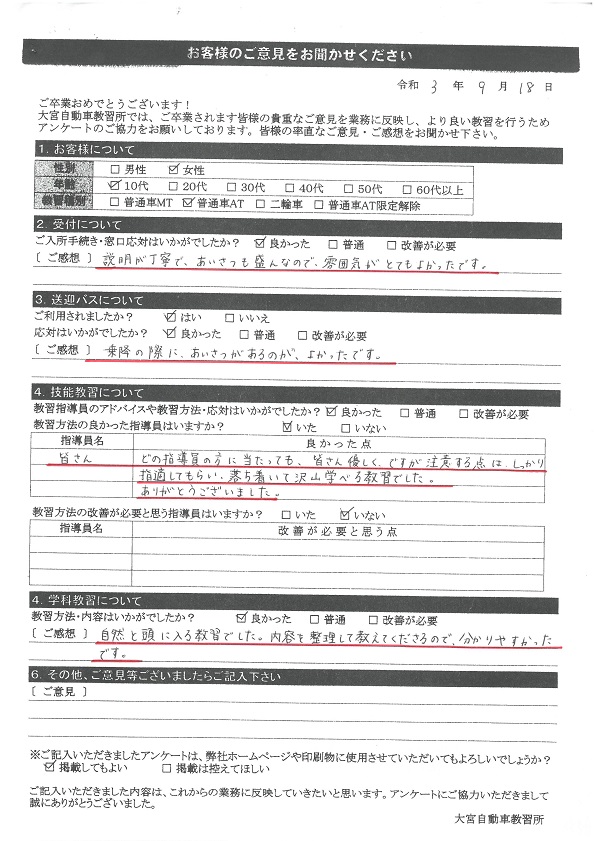 お客様のご意見をお聞かせください
令和 3 年 9 月 18 日
ご卒業おめでとうございます！
大宮自動車教習所では、ご卒業されます皆様の貴重なご意見を業務に反映し、より良い教習を行うため
アンケートのご協力をお願いしております。皆様の率直なご意見・ご感想をお聞かせ下さい。
1. お客様について
性別 □ 男性 ☑ 女性
年齢 ☑ 10代 □ 20代 □ 30代 □ 40代 □ 50代 □ 60代以上
教習種別 □ 普通車MT ☑ 普通車AT □ 二輪車 □ 普通車AT限定解除
2. 受付について
ご入所手続き・窓口応対はいかがでしたか？ ☑ 良かった □ 普通 □ 改善が必要
〔 ご感想 〕 説明が丁寧で、あいさつも盛んなので、雰囲気がとてもよかったです。
3. 送迎バスについて
ご利用されましたか？ ☑ はい □ いいえ
応対はいかがでしたか？ ☑ 良かった □ 普通 □ 改善が必要
〔 ご感想 〕 乗降の際に、あいさつがあるのが、よかったです。
4. 技能教習について
教習指導員のアドバイスや教習方法・応対はいかがでしたか？ ☑ 良かった □ 普通 □ 改善が必要
教習方法の良かった指導員はいますか？ ☑ いた □ いない
指導員名 良かった点
皆さん どの指導員の方に当たっても、皆さん優しく、ですが注意する点は、しっかり
指適してもらい、落ち着いて沢山学べる教習でした。
ありがとうございました。
教習方法の改善が必要と思う指導員はいますか？ □ いた ☑ いない
指導員名 改善が必要と思う点
4. 学科教習について
教習方法・内容はいかがでしたか？ ☑ 良かった □ 普通 □ 改善が必要
〔 ご感想 〕 自然と頭に入る教習でした。内容を整理して教えてくださるので、分かりやすかった
です。
6. その他、ご意見等ございましたらご記入下さい
〔 ご意見 〕
※ご記入いただきましたアンケートは、弊社ホームページや印刷物に使用させていただいてもよろしいでしょうか？
☑ 掲載してもよい □ 掲載は控えてほしい
ご記入いただきました内容は、これからの業務に反映していきたいと思います。アンケートにご協力いただきまして
誠にありがとうございました。
大宮自動車教習所